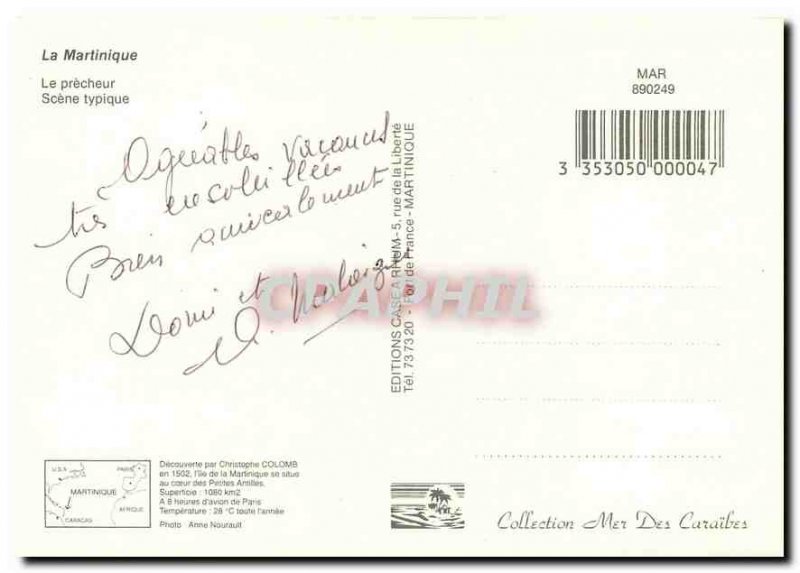 La Martinique
Le prècheur
Scène typique
MAR
890249
3 353050 000047
Agréables vacances
très ensoleillées
Bien amicalement
Domi et
EDITIONS CASE A RHUM - 5, rue de la Liberté
Tél. 73 73 20 - Fort de France - MARTINIQUE
CPAPHIL
U.S.A
PARIS
MARTINIQUE
CARACAS
AFRIQUE
Découverte par Christophe COLOMB
en 1502, l'île de la Martinique se situe
au cœur des Petites Antilles.
Superficie : 1080 km2
A 8 heures d'avion de Paris
Température : 28 °C toute l'année
Photo Anne Nourault
Collection Mer Des Caraïbes